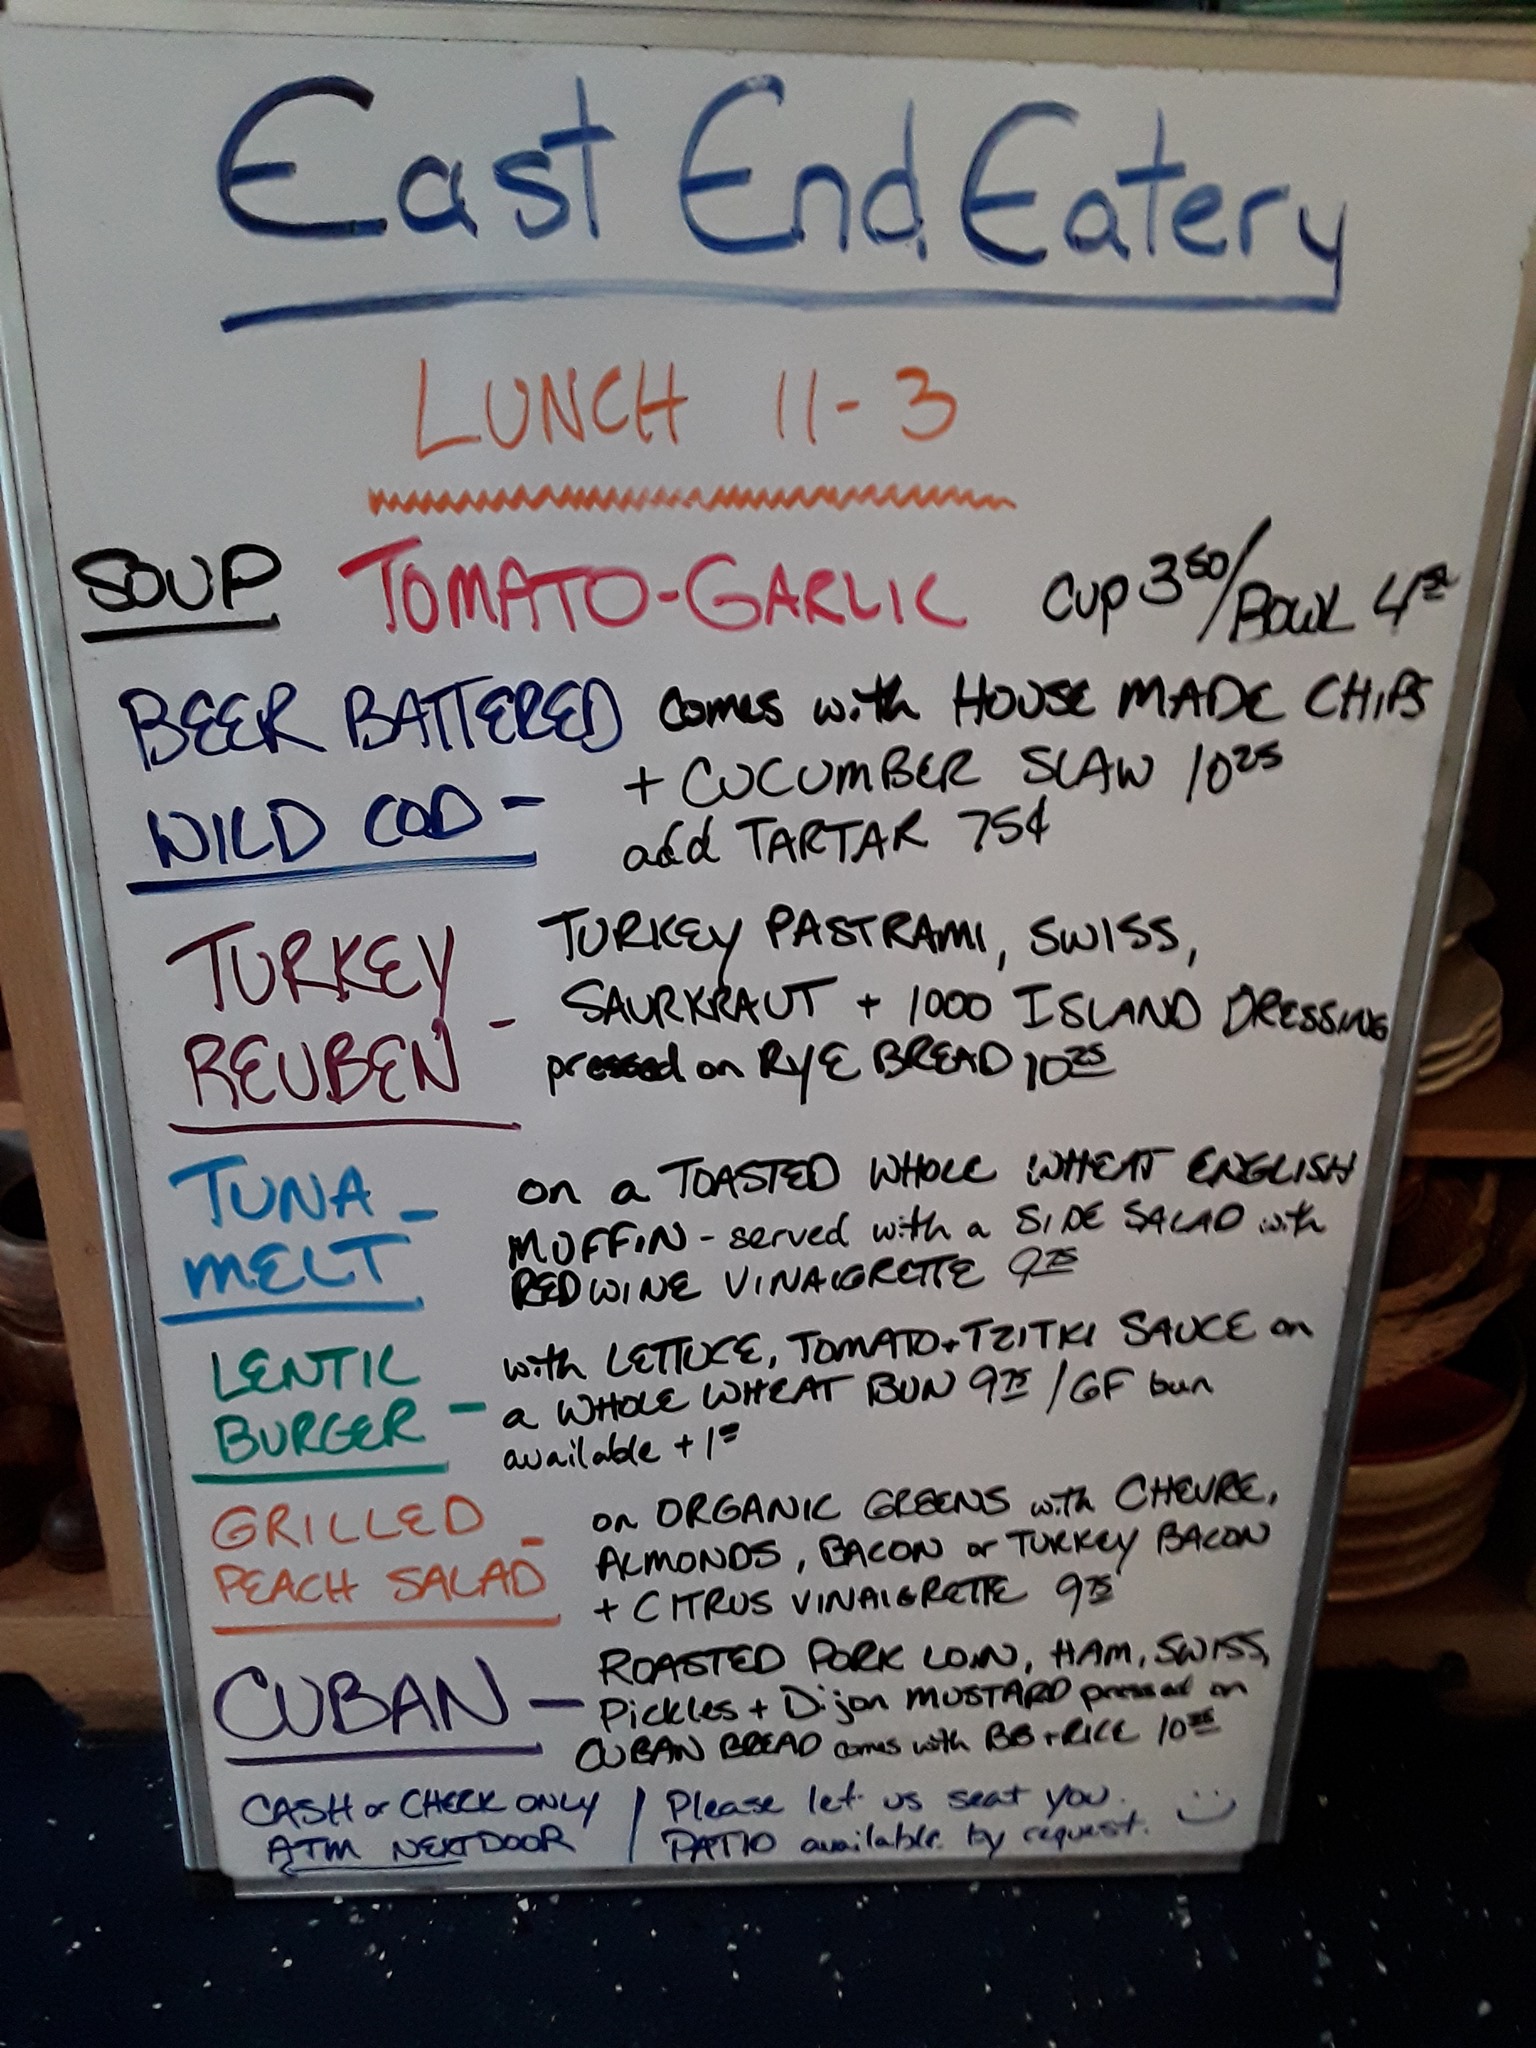 East End Eatery
LUNCH 11-3
SOUP TOMATO-GARLIC CUP 3 50/BOWL 4 50
BEER BATTERED comes with HOUSE MADE CHIPS
WILD COD - + CUCUMBER SLAW 10 25
add TARTAR 75¢
TURKEY REUBEN - TURKEY PASTRAMI, SWISS,
SAURKRAUT + 1000 ISLAND DRESSING
pressed on RYE BREAD 10 25
TUNA MELT - on a TOASTED WHOLE WHEAT ENGLISH
MUFFIN - served with a SIDE SALAD with
RED WINE VINAIGRETTE 9 75
LENTIL BURGER - with LETTUCE, TOMATO + TZITKI SAUCE on
a WHOLE WHEAT BUN 9 75 / GF bun
available + 1 00
GRILLED PEACH SALAD - on ORGANIC GREENS with CHEVRE,
ALMONDS, BACON or TURKEY BACON
+ CITRUS VINAIGRETTE 9 75
CUBAN - ROASTED PORK LOIN, HAM, SWISS,
Pickles + Dijon MUSTARD pressed on
CUBAN BREAD comes with BB + RICE 10 25
CASH or CHECK ONLY / Please let us seat you.
ATM NEXT DOOR PATIO available by request.